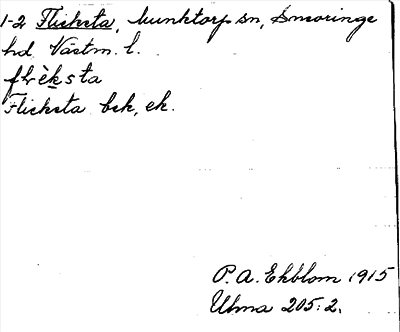 1-2 Flicksta, Munktorp sn, Snevringe
hd. Västm. l.
flèksta
Flicksta bsk, ek.
P. A. Ekblom 1915
Ulma 205:2.